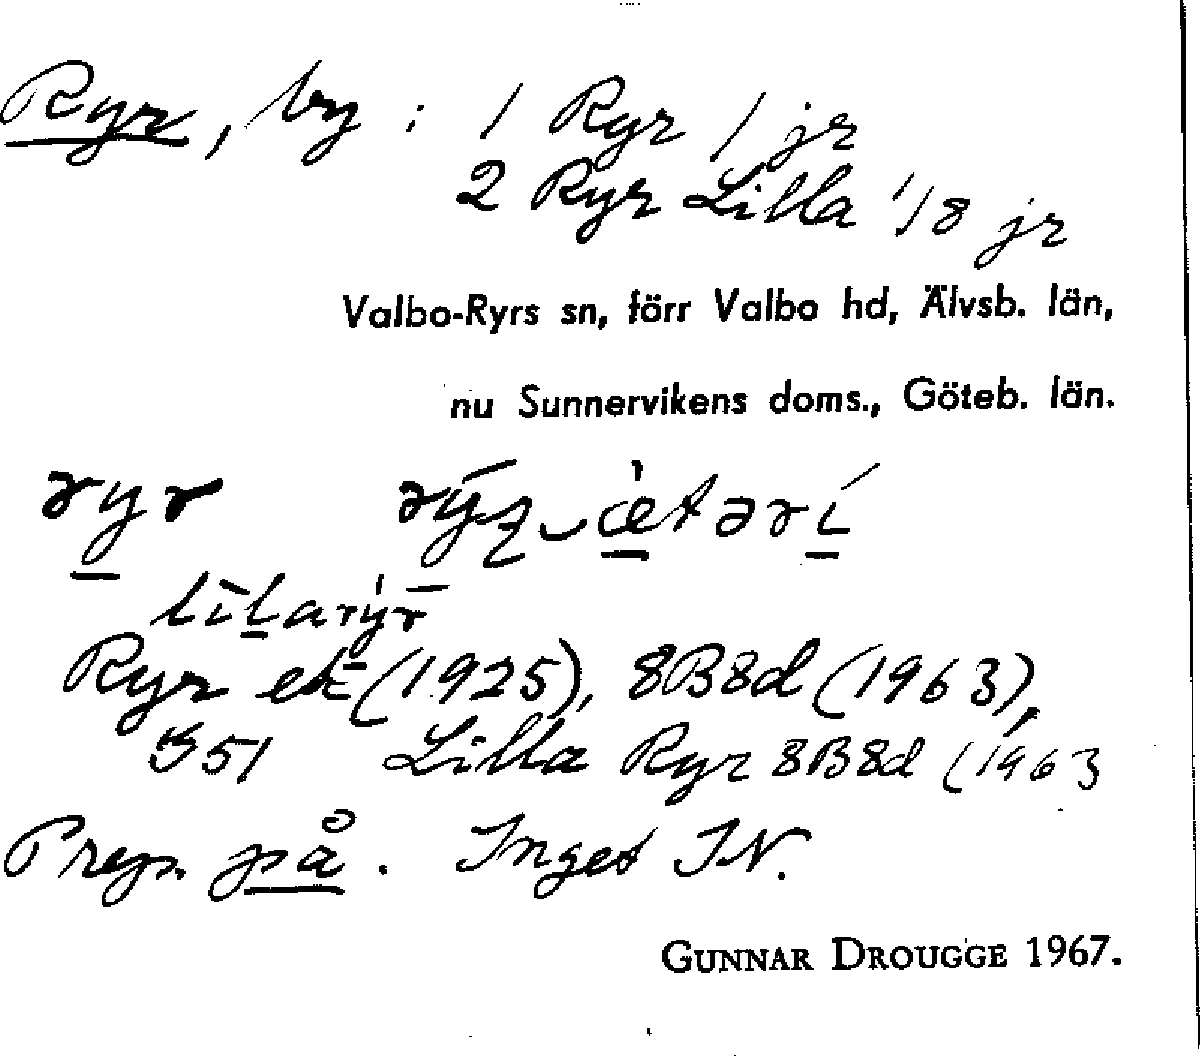 Ryr, by : 1 Ryr 1 jr
2 Ryr Lilla 1/8 jr
Valbo-Ryrs sn, förr Valbo hd, Älvsb. län,
nu Sunnervikens doms., Göteb. län.
ryr
Ryr ek (1925), 8B8d (1963),
J51 Lilla Ryr 8B8d (1963
Prep. på. Inget IN.
GUNNAR DROUGGE 1967.